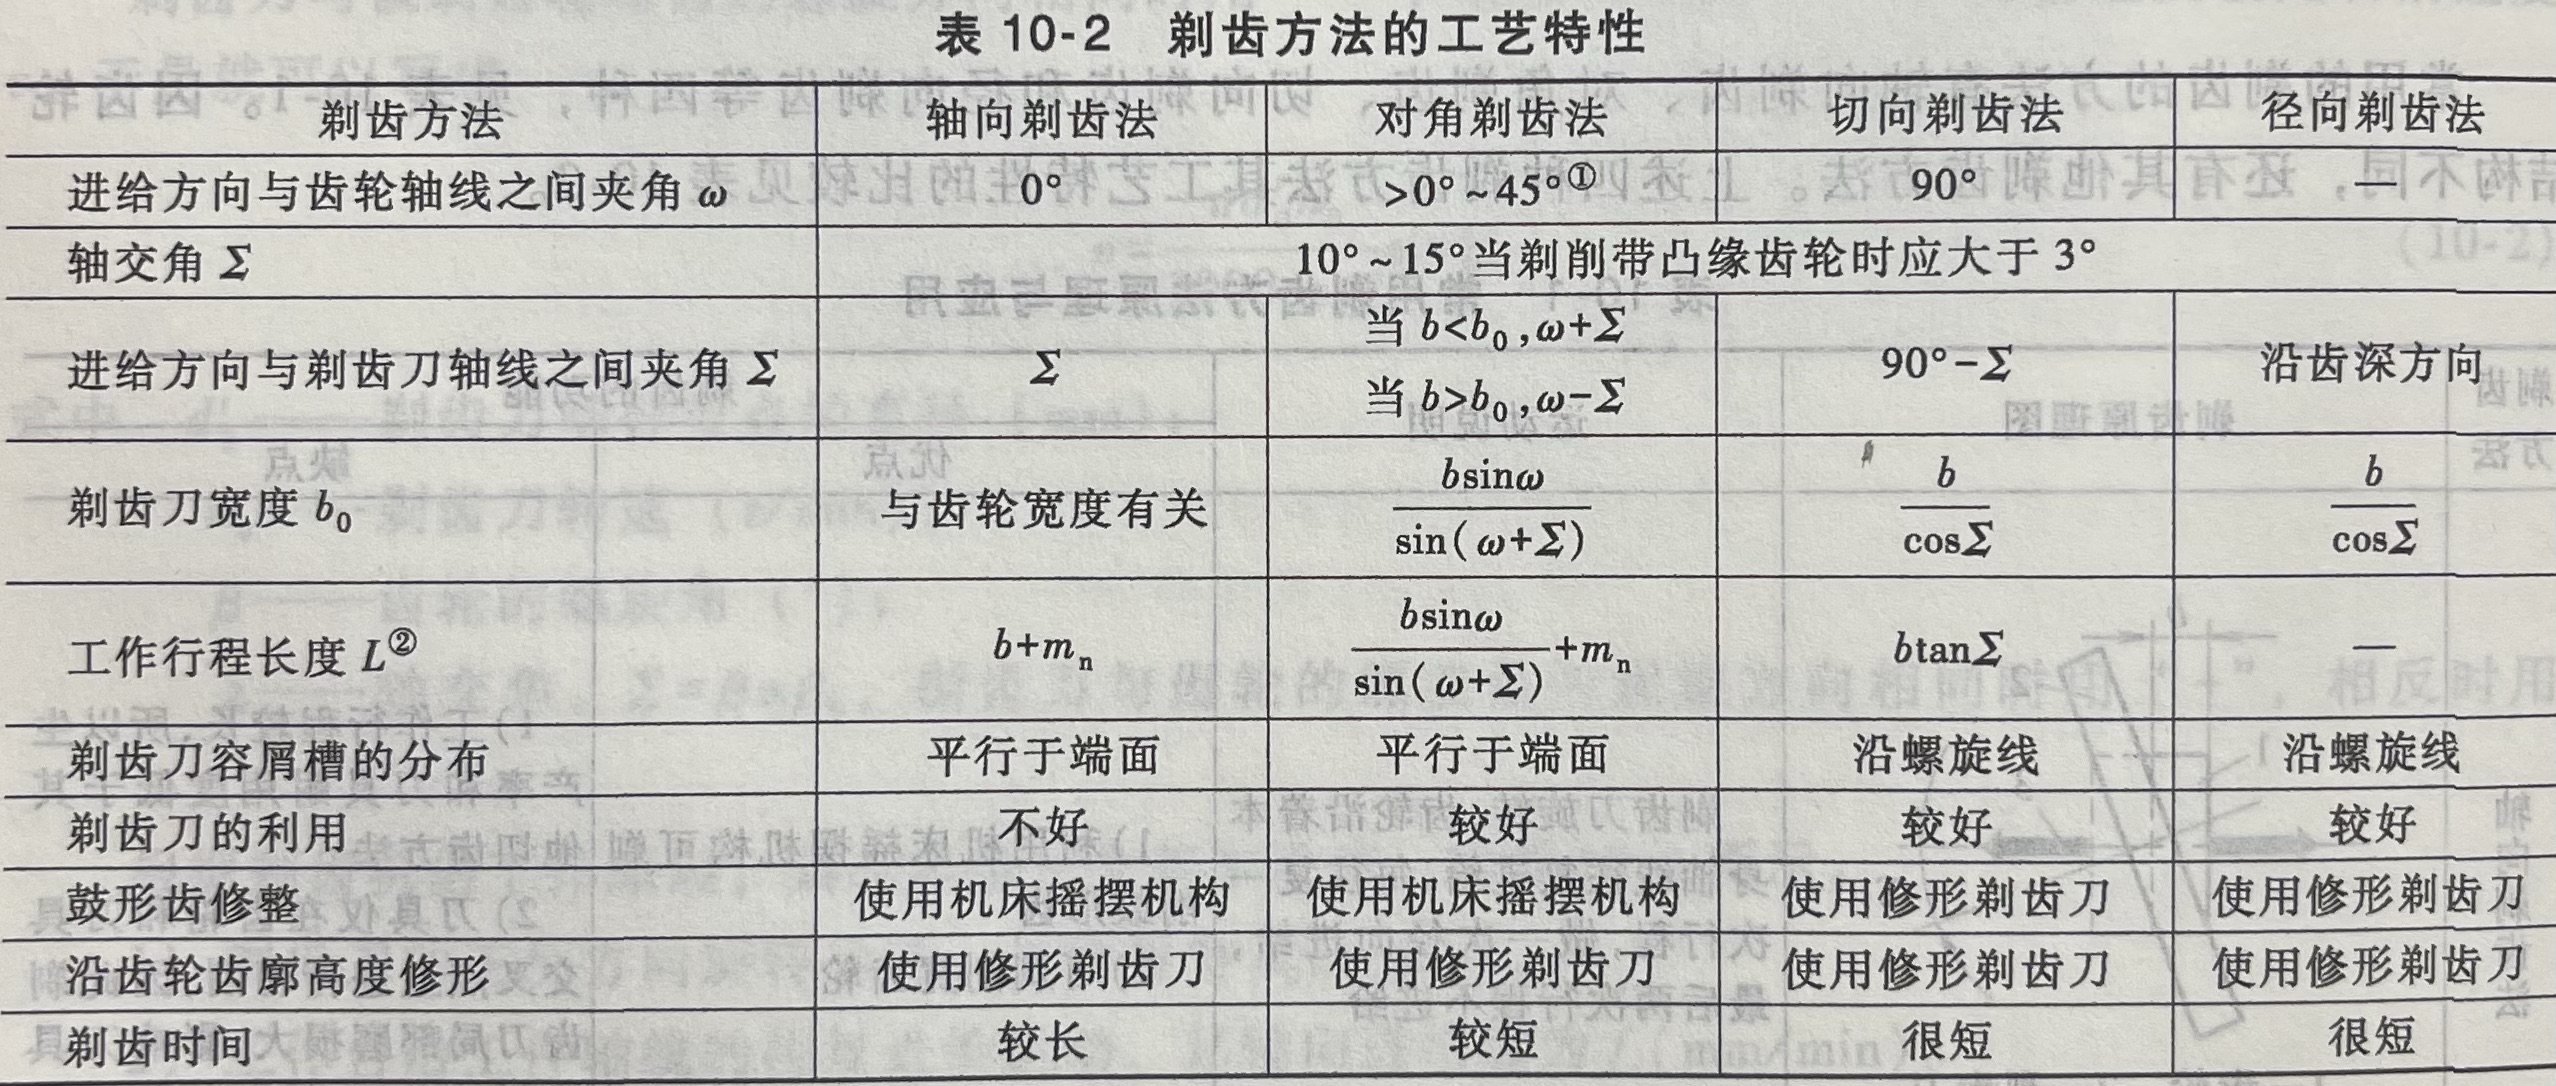 表 10-2 剃齿方法的工艺特性
剃齿方法 轴向剃齿法 对角剃齿法 切向剃齿法 径向剃齿法
进给方向与齿轮轴线之间夹角 ω 0° >0°~45°① 90° —
轴交角 Σ 10°~15°当剃削带凸缘齿轮时应大于 3°
进给方向与剃齿刀轴线之间夹角 Σ Σ 当 b<b₀,ω+Σ 当 b>b₀,ω-Σ 90°-Σ 沿齿深方向
剃齿刀宽度 b₀ 与齿轮宽度有关 bsinω/sin(ω+Σ) b/cosΣ b/cosΣ
工作行程长度 L② b+mₙ bsinω/sin(ω+Σ)+mₙ btanΣ —
剃齿刀容屑槽的分布 平行于端面 平行于端面 沿螺旋线 沿螺旋线
剃齿刀的利用 不好 较好 较好 较好
鼓形齿修整 使用机床摇摆机构 使用机床摇摆机构 使用修形剃齿刀 使用修形剃齿刀
沿齿轮齿廓高度修形 使用修形剃齿刀 使用修形剃齿刀 使用修形剃齿刀 使用修形剃齿刀
剃齿时间 较长 较短 很短 很短